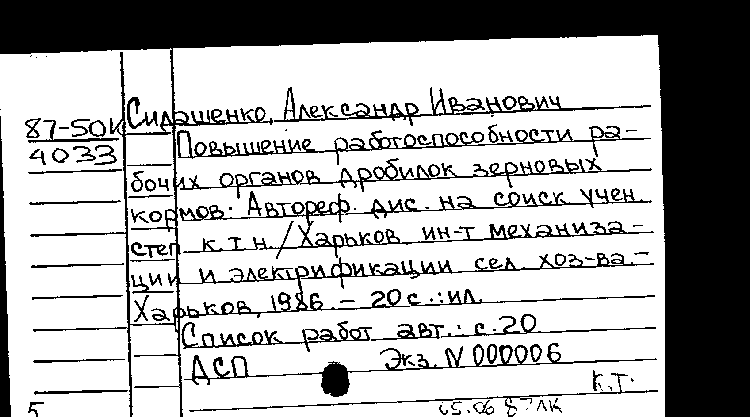 Сидашенко, Александр Иванович
87-50к
4033
Повышение работоспособности ра-
бочих органов дробилок зерновых
кормов: Автореф. дис. на соиск учен.
степ к.т н. / Харьков ин-т механиза-
ции и электрификации сел. хоз-ва.-
Харьков, 1986. - 20 с. : ил.
Список работ авт.: с. 20
ДСП Экз. N 000006
К.Т.
5